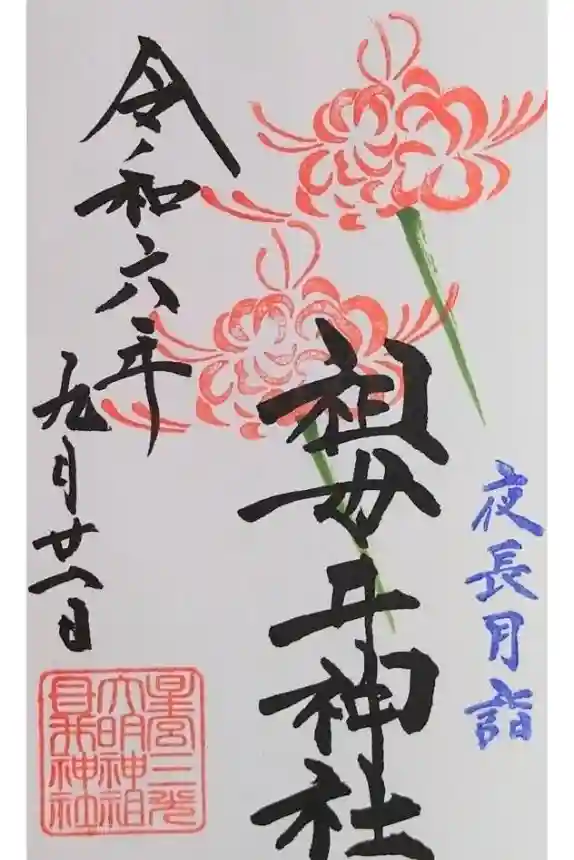 夜長月詣
祖母井神社
令和六年
九月廿一日
星宮三光
大明神祖
母井神社